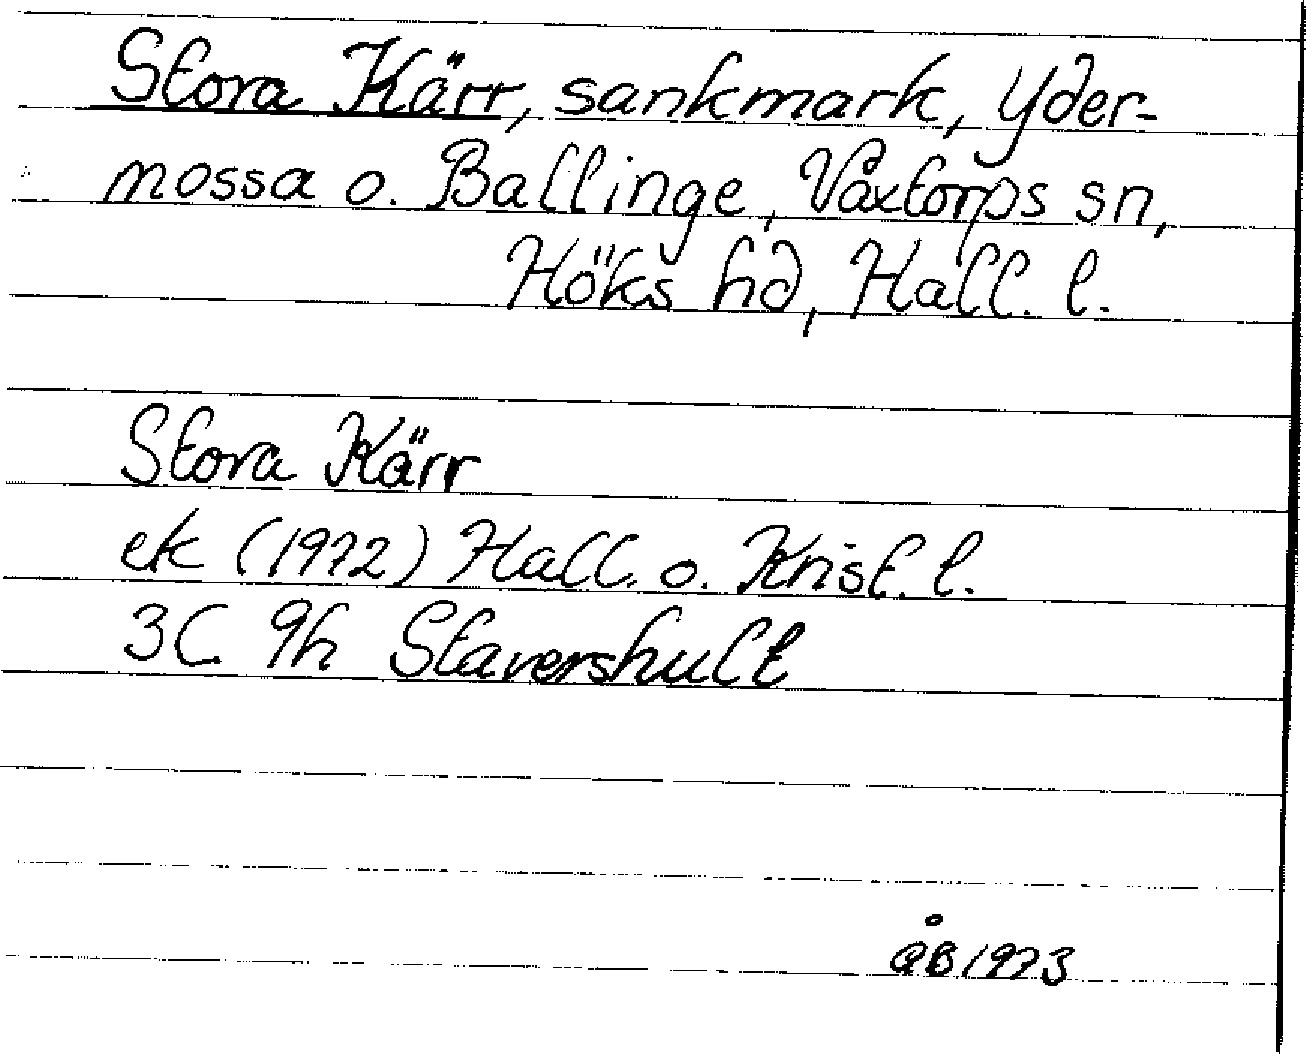 Stora Kärr, sankmark, Yder-
mossa o. Ballinge, Våxtorps sn,
Höks hd, Hall. l.
Stora Kärr
ek (1972) Hall. o. Krist. l.
3C 9h Stavershult
ÅB 1973